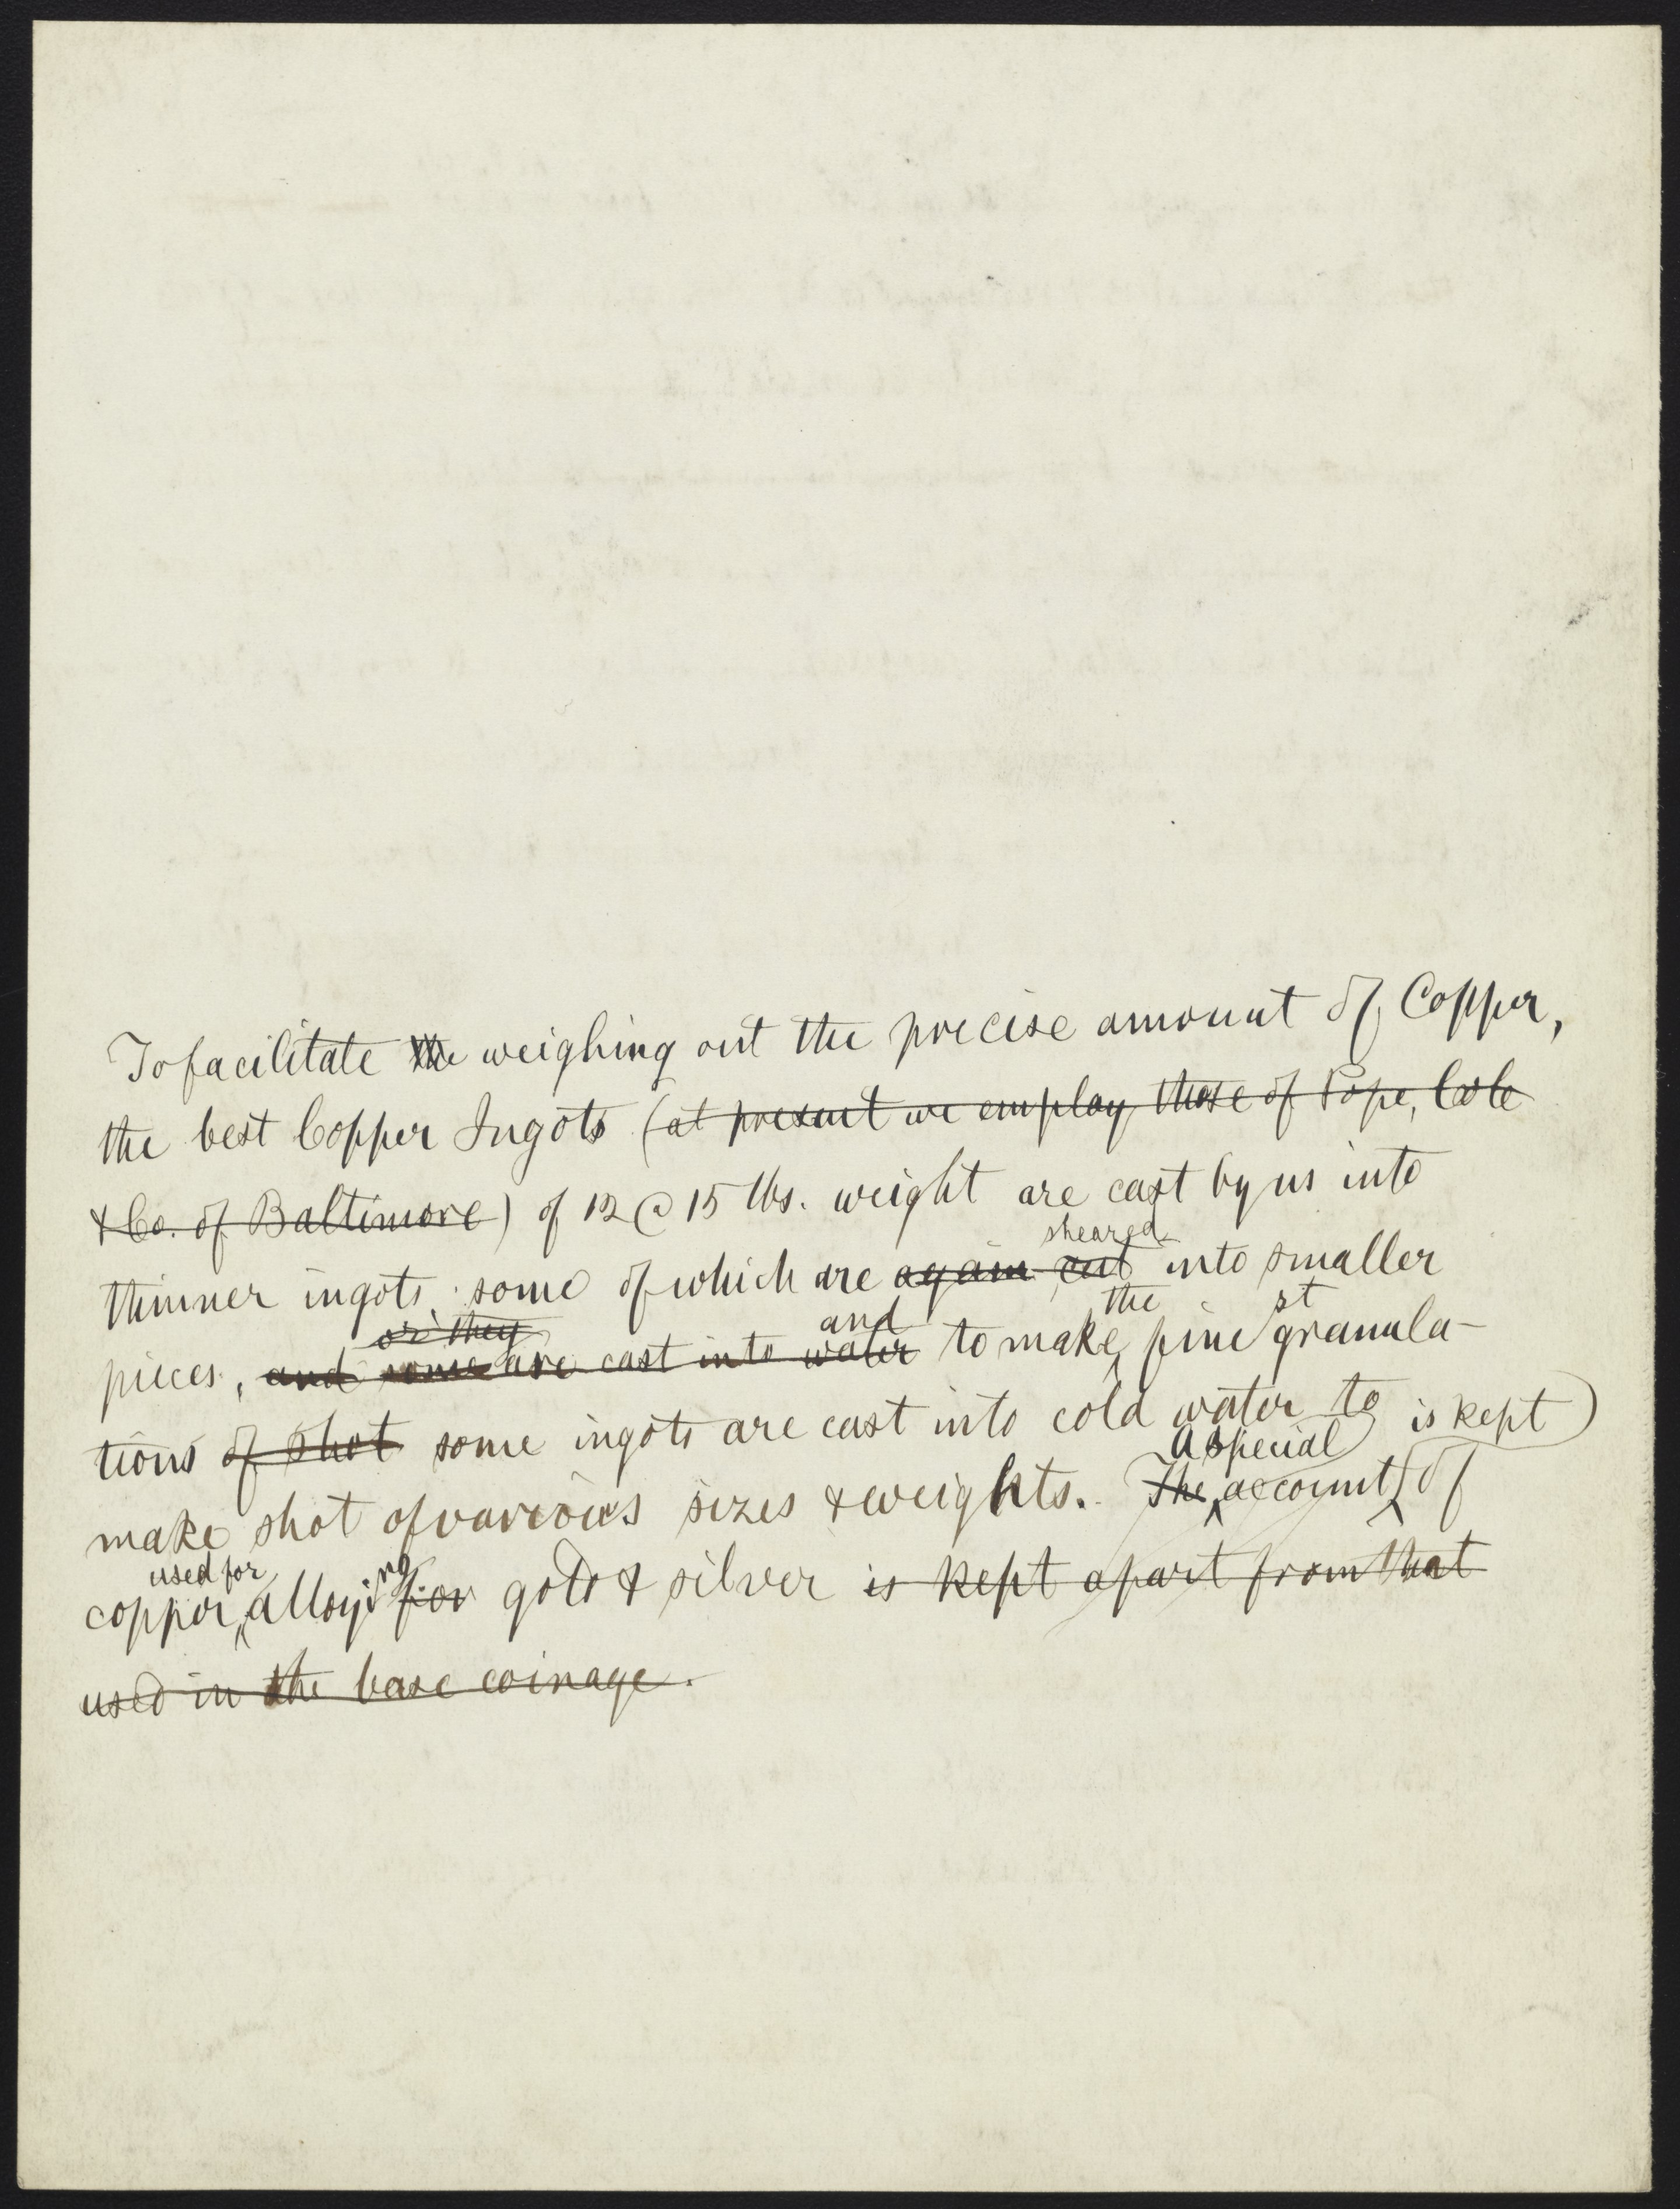 To facilitate the weighing out the precise amount of Copper,
the best Copper Ingots (at present we employ those of Pope, Cole
& Co. of Baltimore) of 12 @ 15 lbs. weight are cast by us into
sheared
thinner ingots, some of which are again cut into smaller
or they and the st
pieces, and some are cast into water to make fine granula-
tions of shot some ingots are cast into cold water to
a special is kept
make shot of various sizes & weights. The account of
used for ing
copper, alloy for gold & silver is kept apart from that
used in the base coinage.